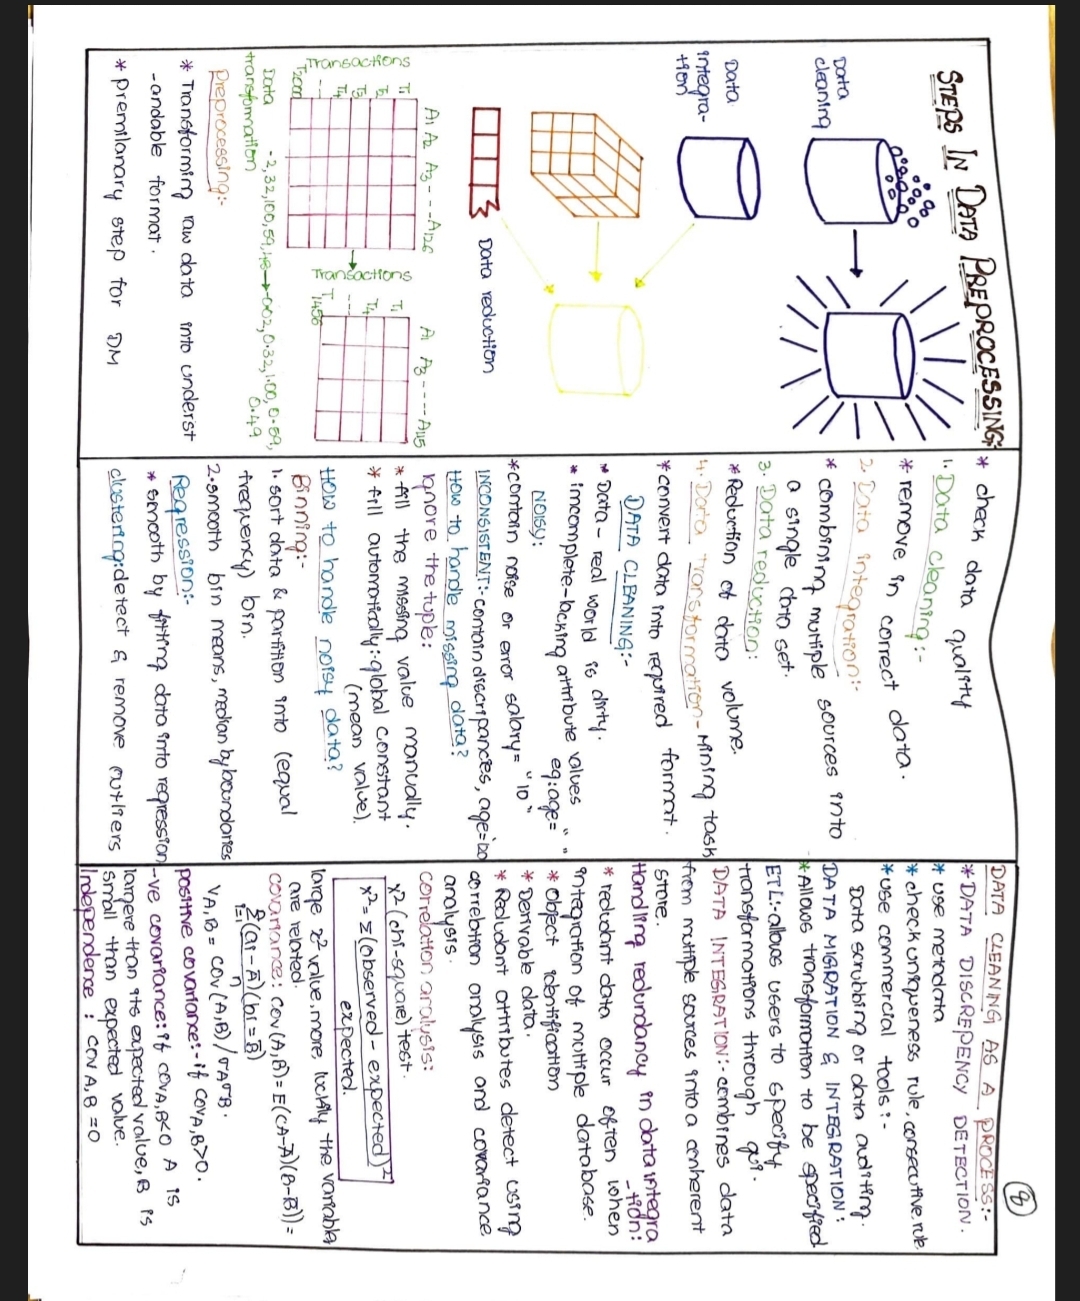 8
STEPS IN DATA PREPROCESSING:
Data
cleaning
Data
integra-
tion
Data reduction
A1 A2 A3 --- A126
Transactions
T1
T2
T3
T4
---
T2000
A1 A3 ---- A115
Transactions
T1
T4
---
T1456
Data
transformation
-2,32,100,59,48→-0.02,0.32,1.00,0.59,
0.49
Preprocessing:-
* Transforming raw data into underst
-andable format.
* premilanary step for DM
* check data quality
1. Data cleaning:-
* remove in correct data.
2. Data integration:-
* combining multiple sources into
a single data set.
3. Data reduction:
* Reduction of data volume.
4. Data transformation - Mining task
* convert data into required format.
DATA CLEANING:-
* Data - real world is dirty.
* imcomplete - lacking attribute values
eg: age= " "
NOISY:
* contain noise or error salary= "10"
INCONSISTENT:- contain discripancies, age=
How to handle missing data?
Ignore the tuple:
* fill the missing value manually.
* fill automatically: global constant
(mean value).
HOW to handle noisy data?
Binning:-
1. sort data & partition into (equal
frequency) bin.
2. smooth bin means, median by boundaries
Regression:-
* smooth by fitting data into regression
clustering: detect & remove outliers
DATA CLEANING AS A PROCESS:-
* DATA DISCREPENCY DETECTION.
* use metadata
* check uniqueness rule, consecutive rule
* use commercial tools:-
Data scrubbing or data auditing.
DATA MIGRATION & INTEGRATION:
* Allows transformation to be specified
ETL:- allows users to specify
transformations through gui.
DATA INTEGRATION:- combines data
from multiple sources into a conherent
store.
Handling redundancy in data integra
-tion:
* redudant data occur often when
integration of multiple database.
* object identification
* Derivable data.
* Redudant attributes detect using
correlation analysis and covariance
analysis.
correlation analysis:
x² (chi-square) test.
x² = Σ (observed - expected)²
expected.
large x² value, more luckily the variables
are related.
covariance: cov(A,B) = E((A-A̅)(B-B̅)) =
n
Σ(ai - A̅)(bi = B̅)
i=1
n
VA,B = cov(A,B) / σAσB.
positive covariance:- if covA,B>0.
-ve covariance: if covA,B<0 A is
largere than its expected value, B is
small than expected value.
Independence: covA,B =0